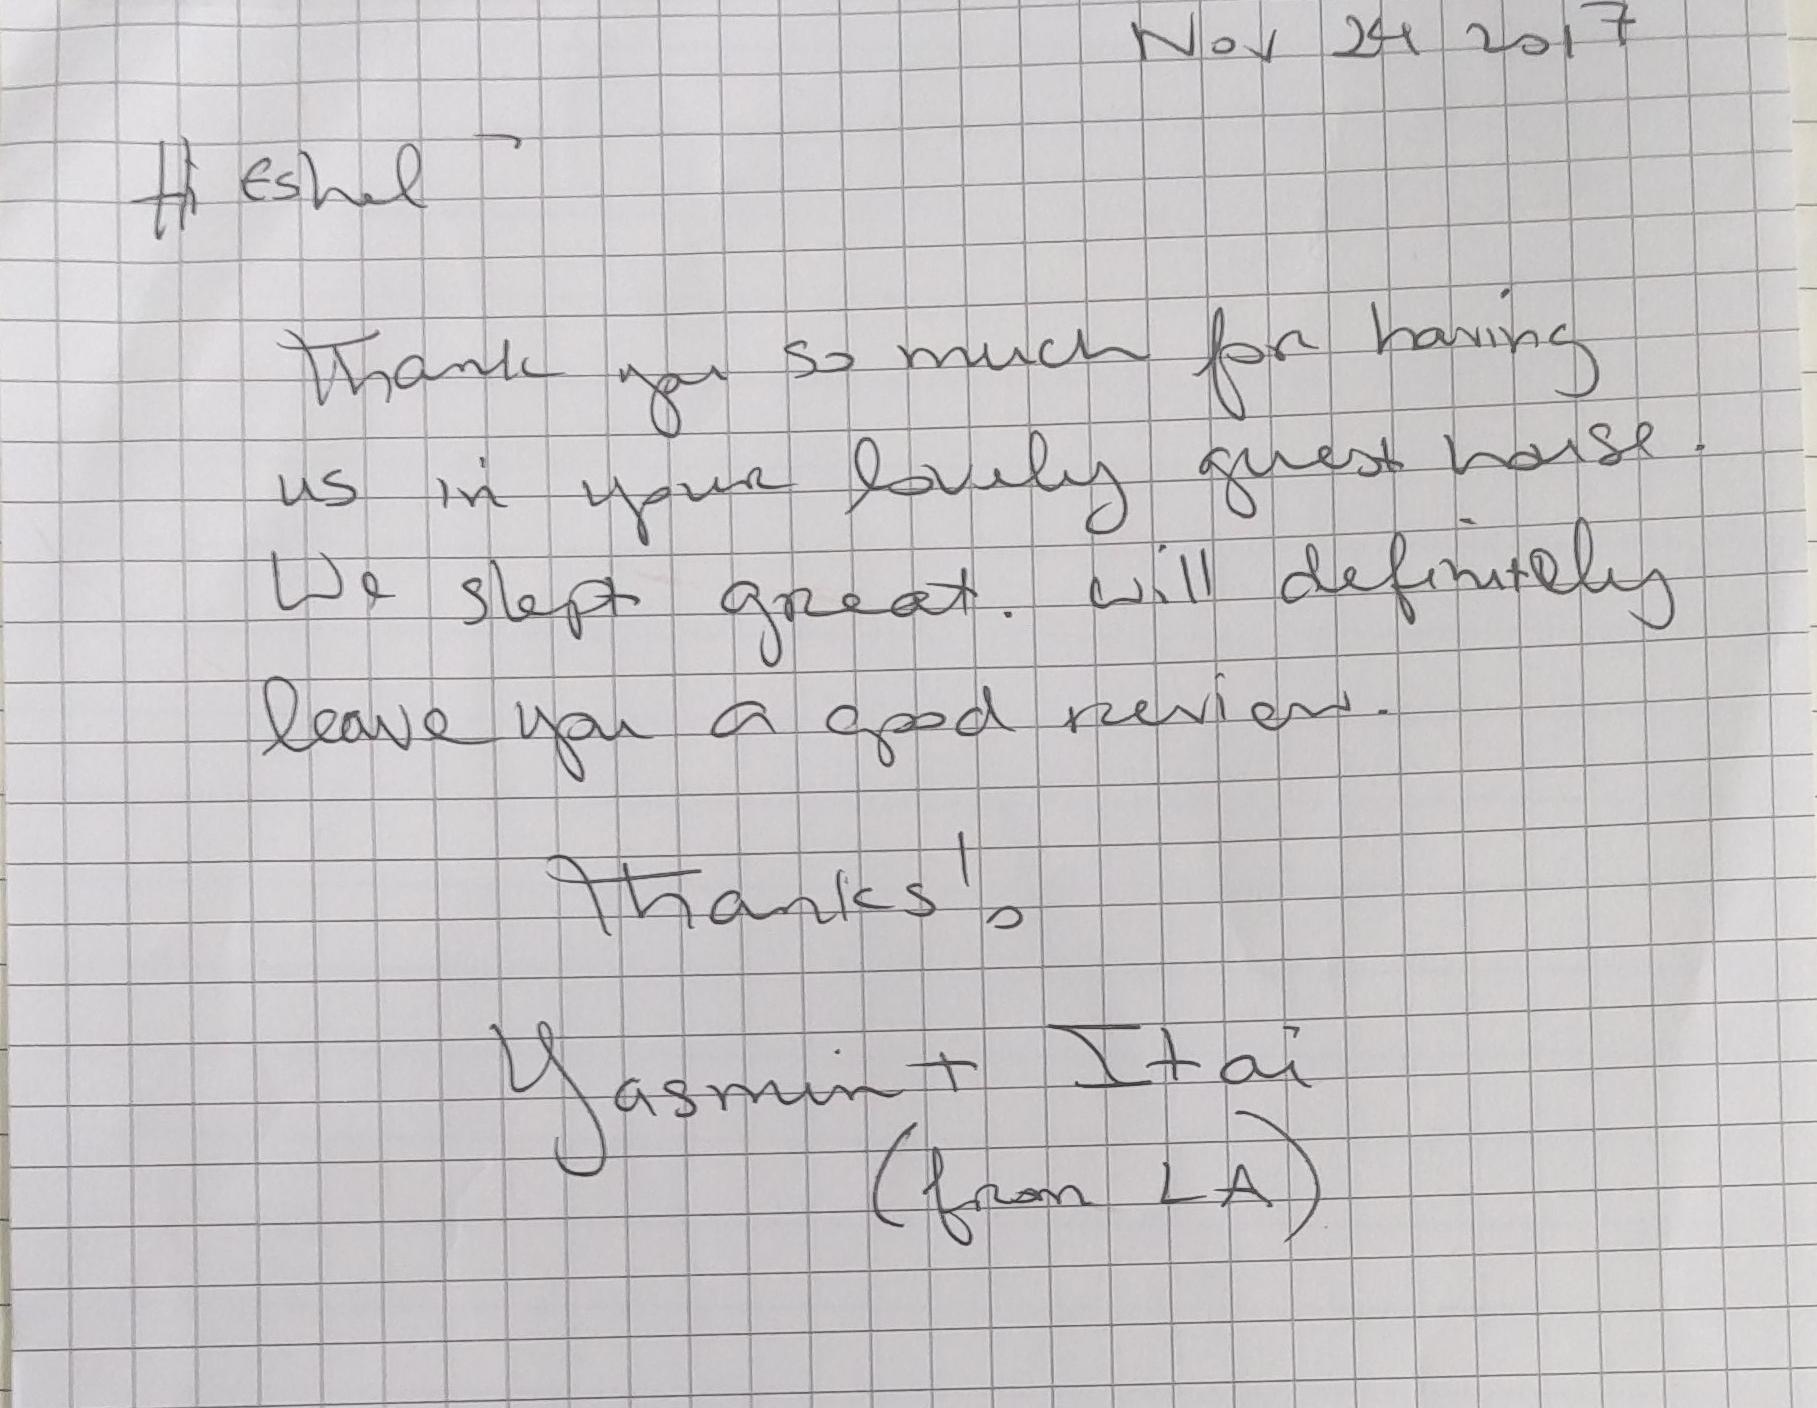 Nov 24 2017
Hi Eshel -
Thank you so much for having
us in your lovely guest house.
We slept great. Will definitely
leave you a good review.
Thanks!
Yasmin + Itai
(from LA)